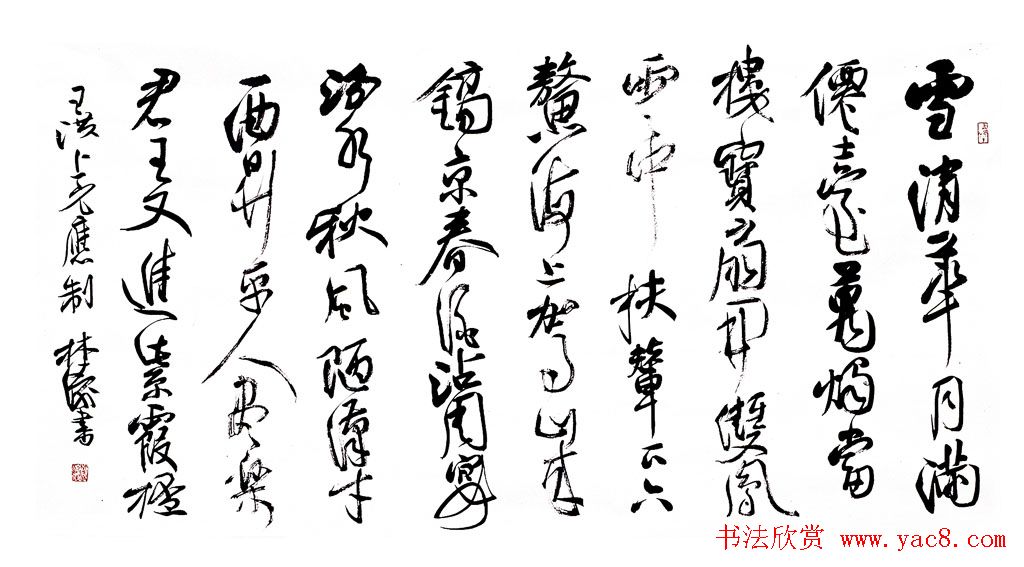 雪消華月滿
僊臺萬燭當
樓寶扇開雙鳳
雲中扶輦下六
鰲海上駕山來
鎬京春酒沾周宴
汾水秋風陋漢才
一曲昇平人盡樂
君王又進紫霞桮
王淇上元應制 書
书法欣赏 www.yac8.com